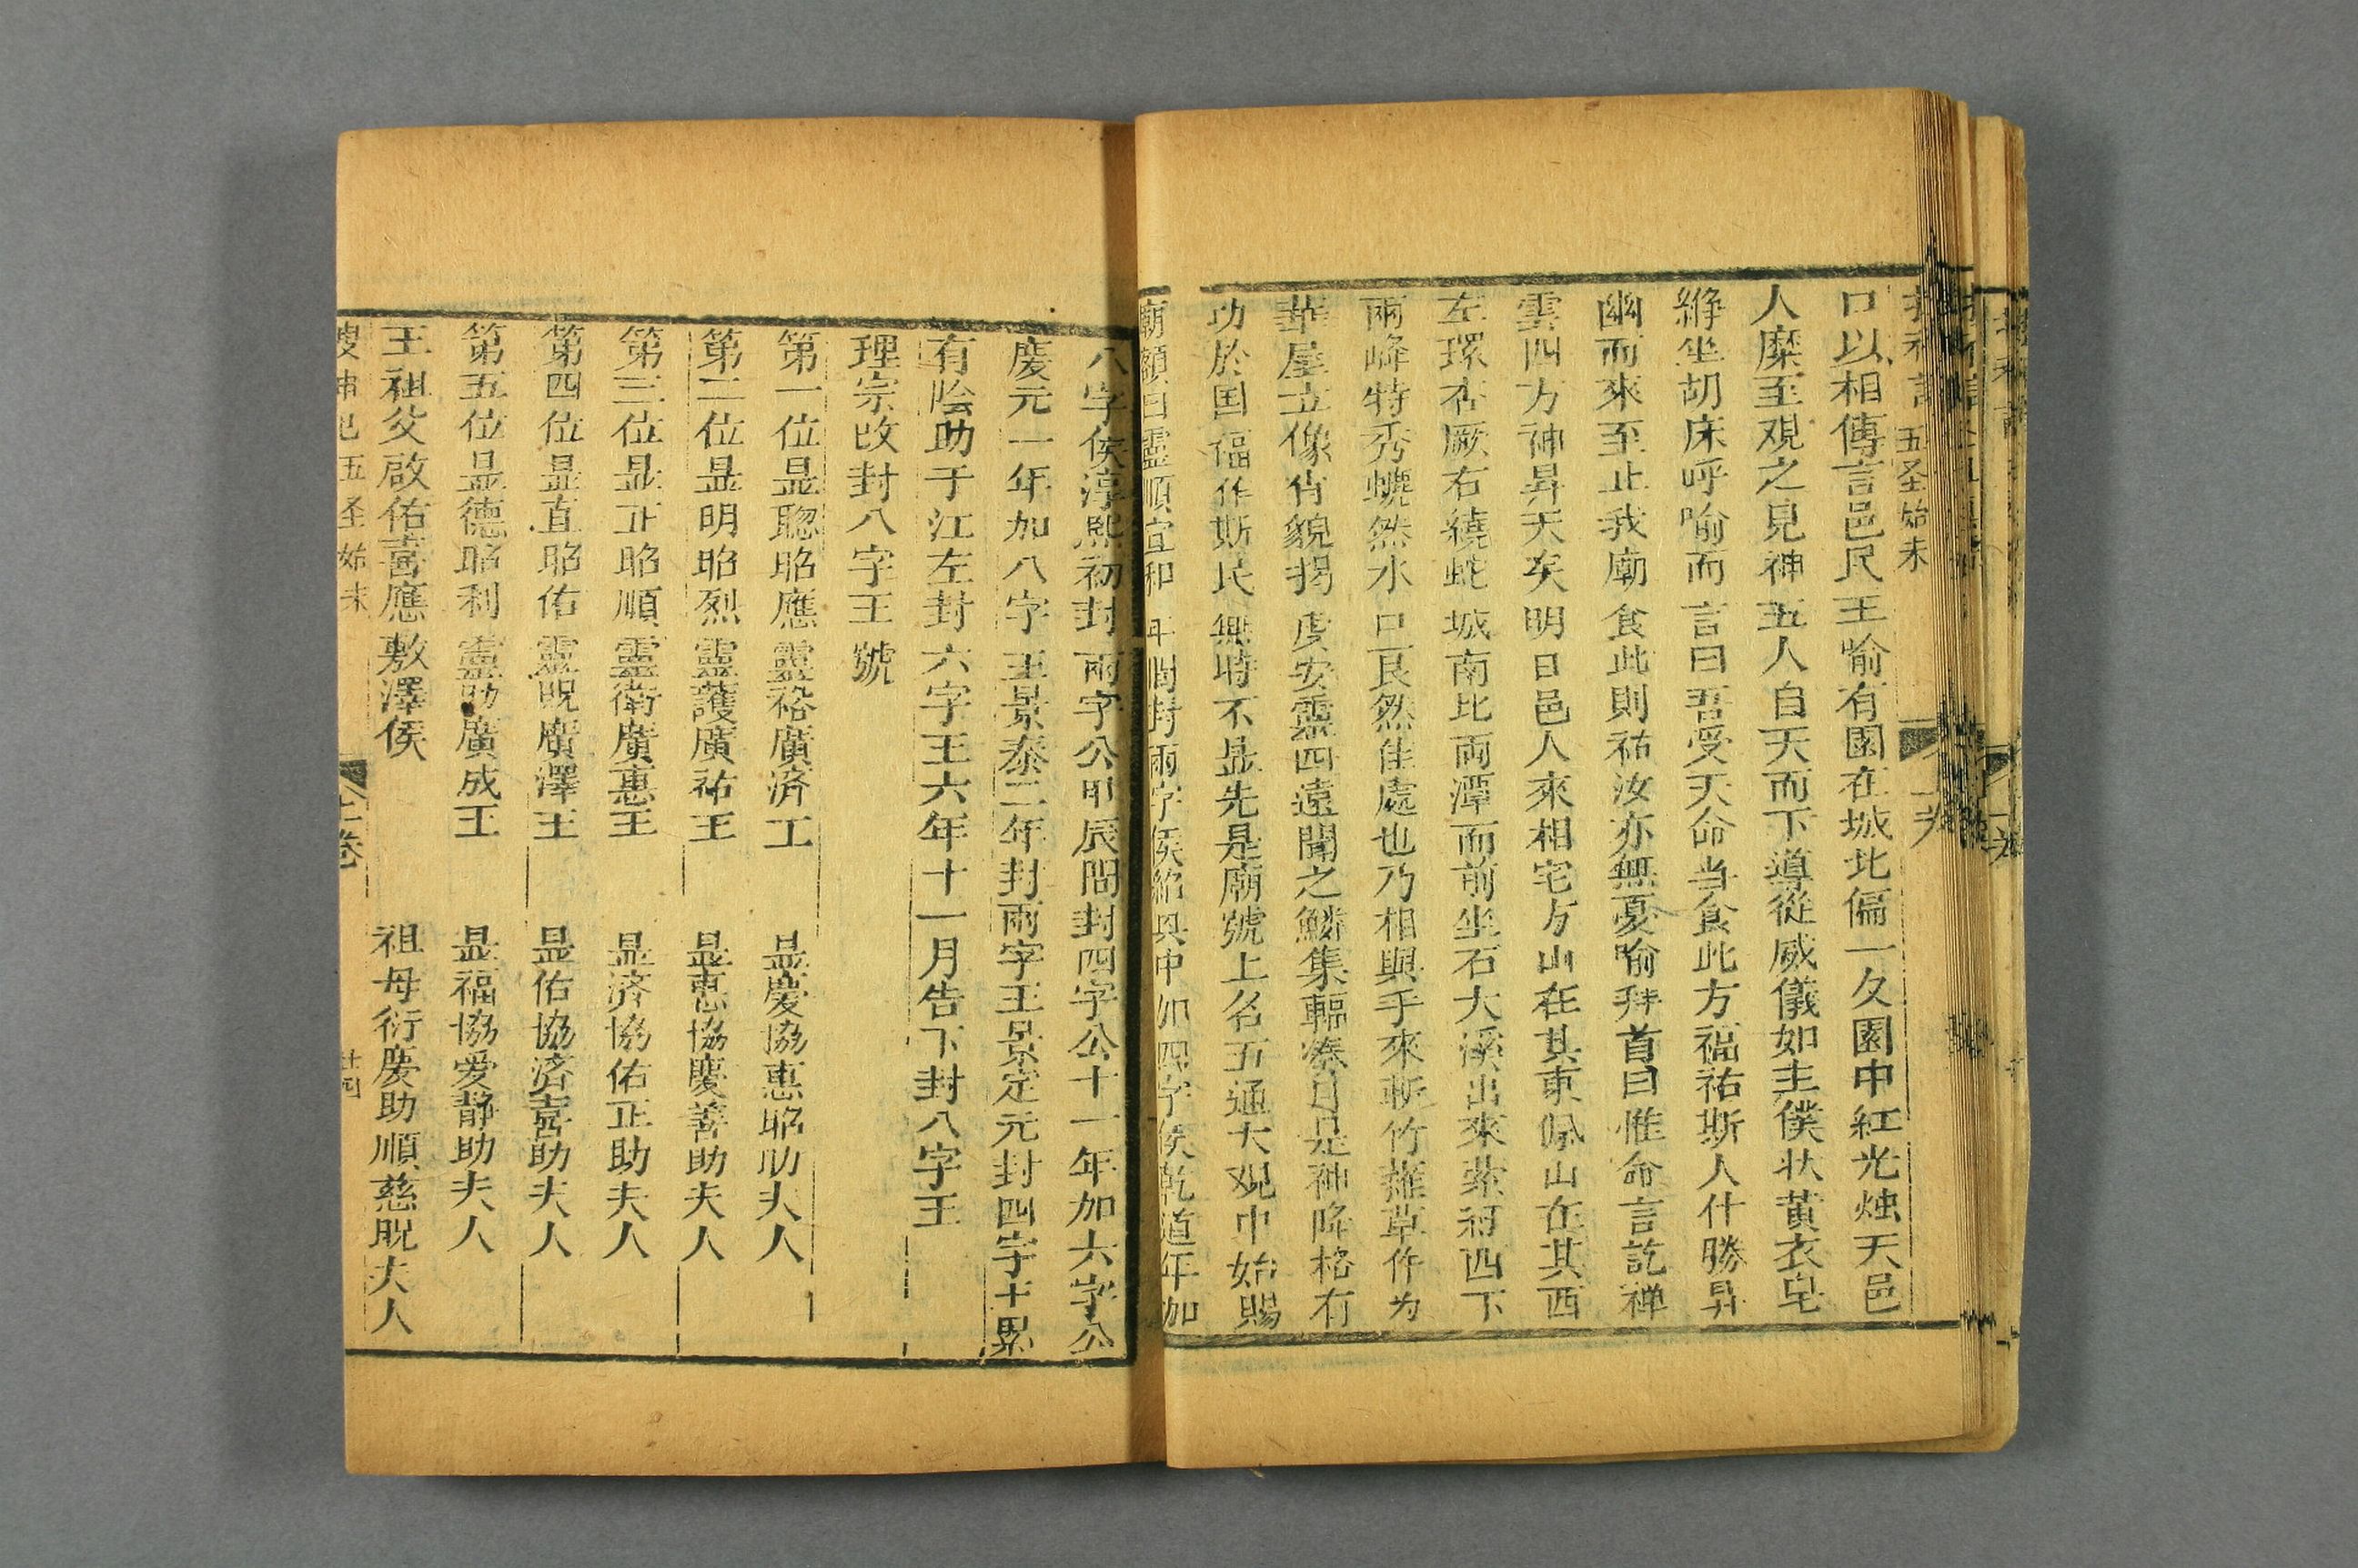 五圣始末
口以相傳言邑民王喻有園在城北偏一夂園中紅光烛天邑
人糜至观之見神五人自天而下導從威儀如主僕状黄衣皂
縧坐胡床呼喻而言曰吾受天命当食此方福祐斯人什勝昇
幽而來至止我廟食此則祐汝亦無憂喻拜首曰惟命言訖禅
雲四方神昇天矣明日邑人來相宅方山在其東佩山在其西
左環杏厥右繞蛇城南比両潭而前坐石大溪出來縈紆四下
兩峰特秀巉然水口良然佳處也乃相與手來斬竹薙草作为
華屋立像肖貌揭虔安靈四遠聞之鱗集輻湊自是神降格有
功於国福作斯民無時不显先是廟號上名五通大观中始賜
廟額曰靈順宣和年間封兩字侯紹興中加四字侯乾道年加
八字侯淳熙初封兩字公甲辰間封四字公十一年加六字公
慶元一年加八字王景泰二年封兩字王景定元封四字十累
有陰助于江左封六字王六年十一月告下封八字王
理宗改封八字王號
第一位显聦昭應靈裕廣济王 显慶協惠昭助夫人
第二位显明昭烈靈護廣祐王 显惠協慶善助夫人
第三位显正昭順靈衛廣惠王 显济協佑正助夫人
第四位显直昭佑靈貺廣澤王 显佑協濟喜助夫人
第五位显德昭利靈助廣成王 显福協爱静助夫人
王祖父啟佑喜應敷澤侯 祖母衍慶助順慈貺夫人
搜神記 五圣始末 上卷